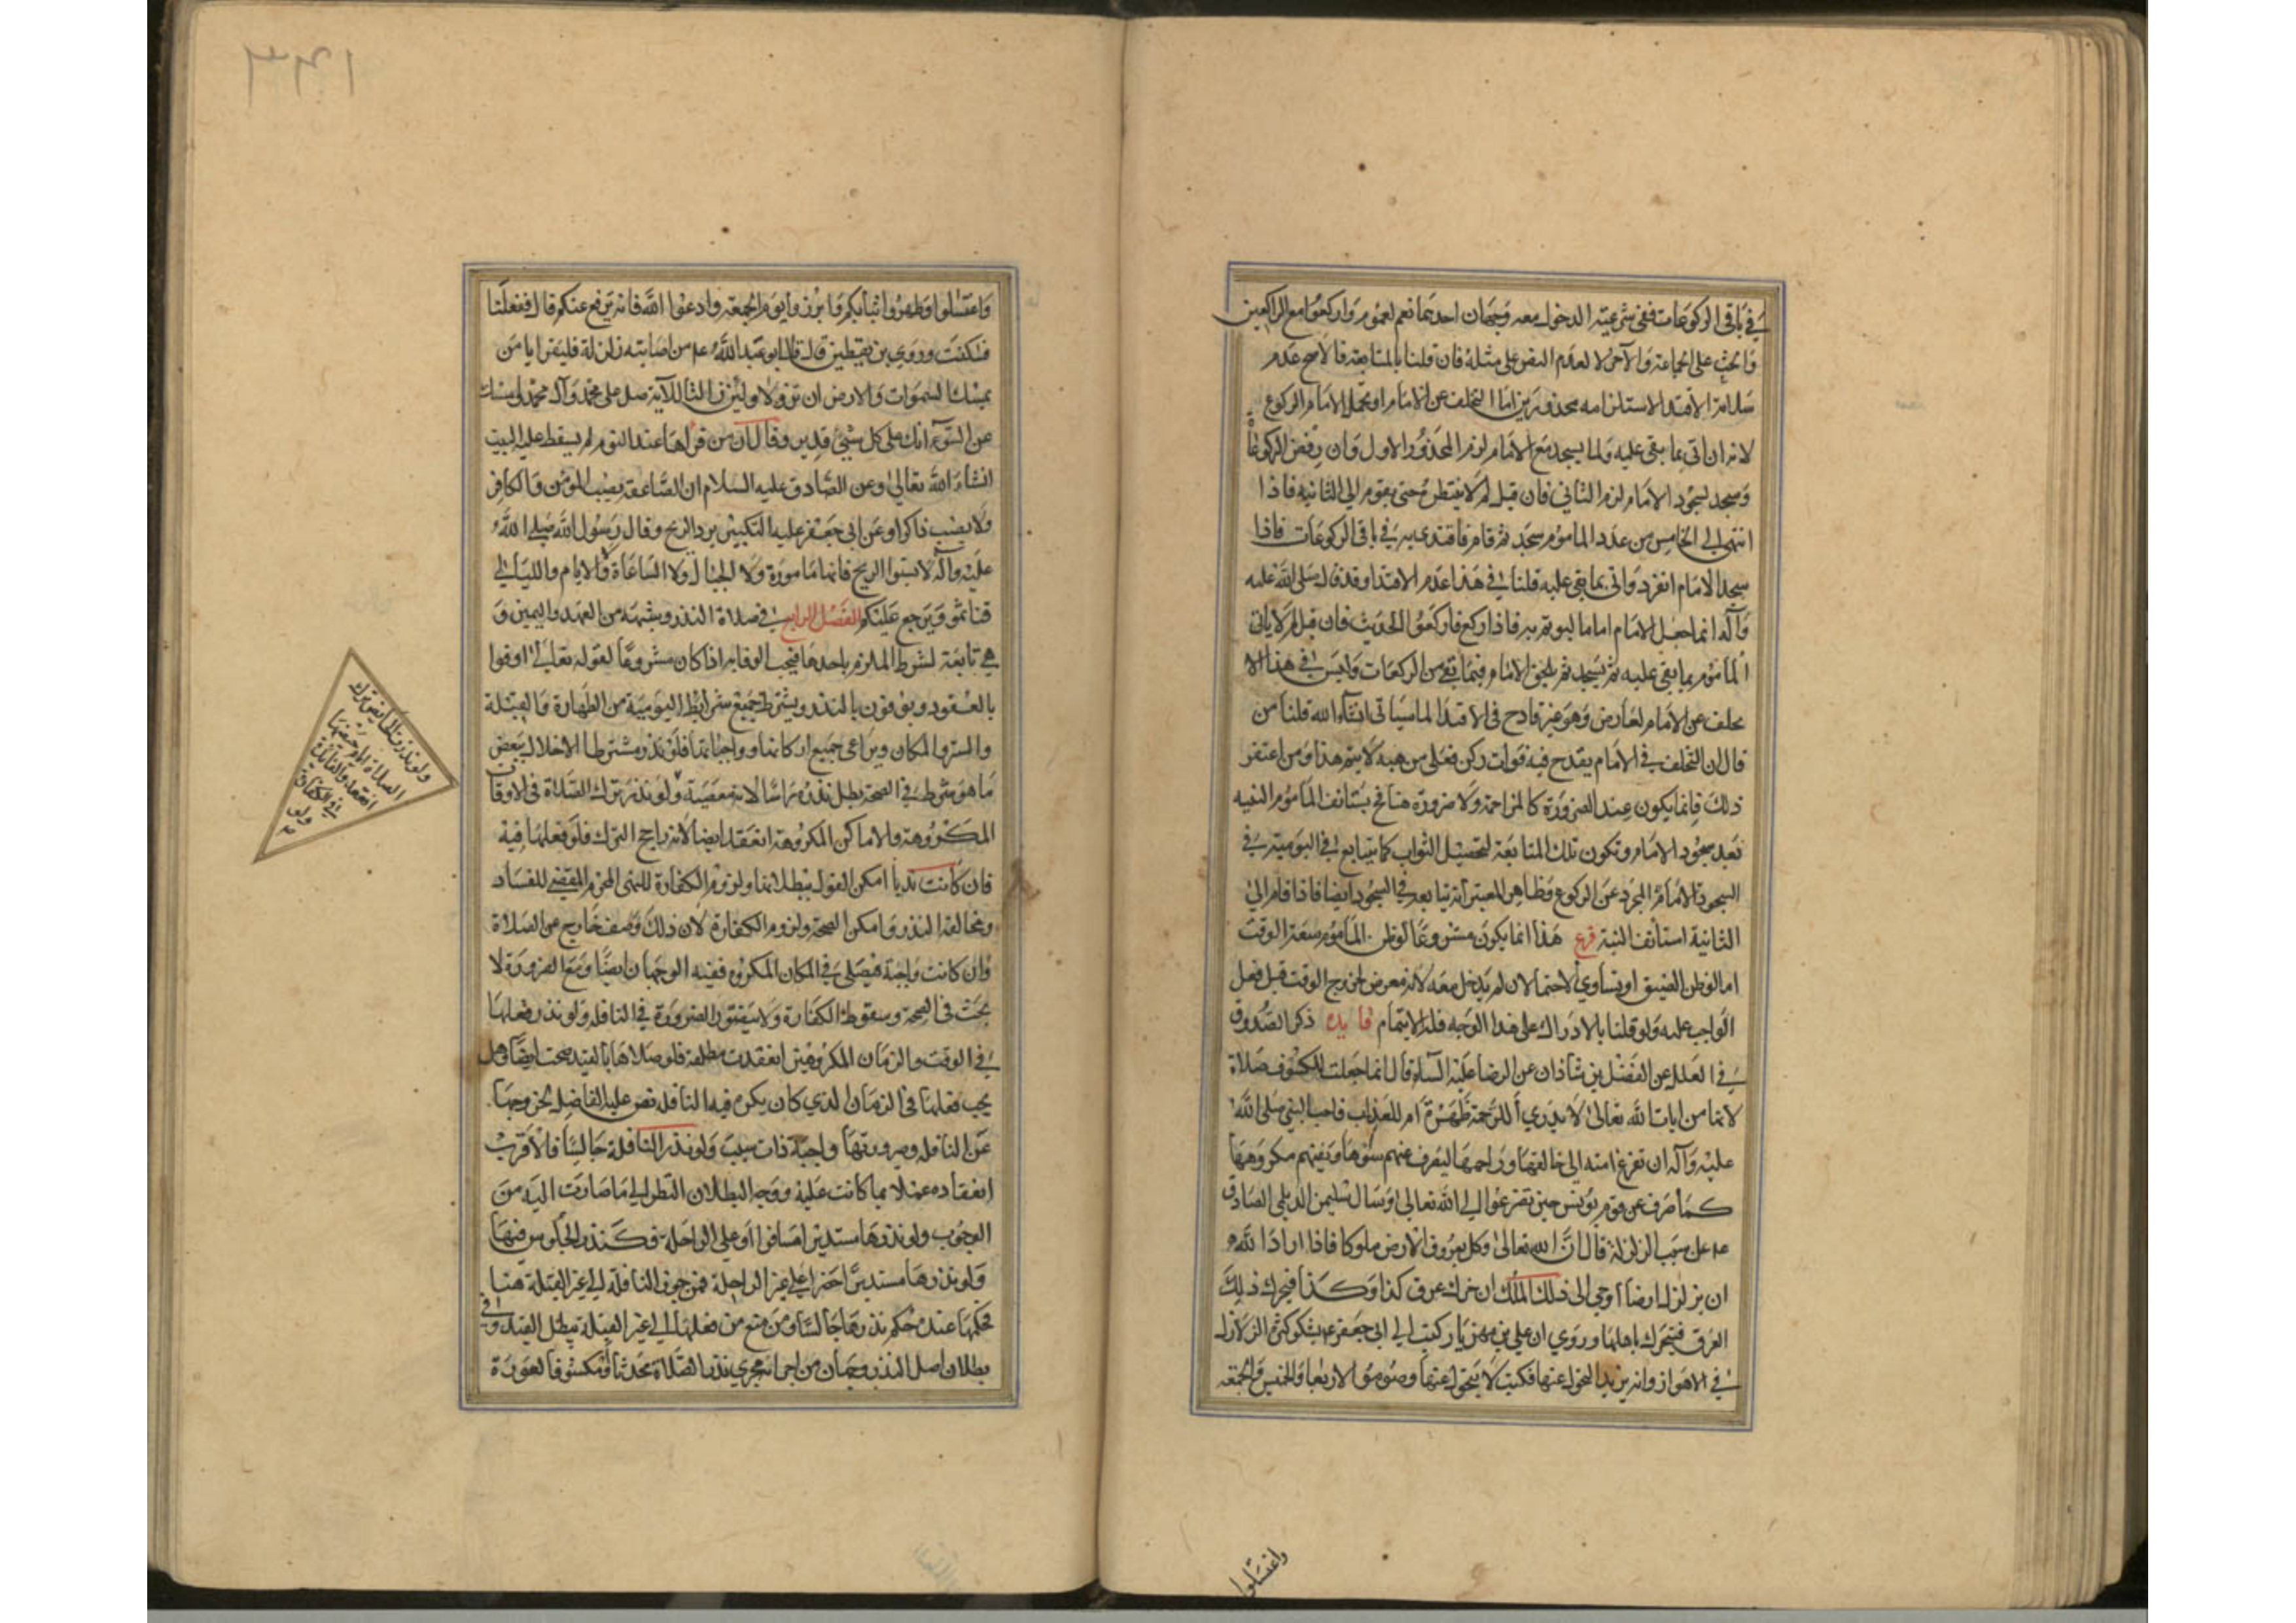 في باقي الركوعات ففي شرعية الدخول معه وجهان احدهما نعم لعموم واركعوا مع الراكعين
والحث على الجماعة والآخر لا لعدم النص على مثله فان قلنا بالمتابعة فالاصح عدم
سلامة الاقتدا لاستلزامه محذورين اما التخلف عن الامام او تحمل الامام الركوع
لانه ان اتى بما بقى عليه ولما يسجد مع الامام لزم المحذور الاول وان رفض الركوعات
وسجد لسجود الامام لزم الثاني فان قيل لم لا ينتظره حتى يقوم الى الثانية فاذا
انتهى الى الخامس من عدد الماموم سجد ثم قام فاقتدى به في باقي الركوعات فاذا
سجد الامام انفرد واتى بما بقى عليه قلنا في هذا عدم الاقتدا وقد قال صلى الله عليه
وآله انما جعل الامام اماما ليوتم به فاذا ركع فاركعوا الحديث فان قيل لم لا ياتى
المأموم بما بقى عليه ثم يسجد ثم يلحق الامام فيما بقى من الركعات وليس في هذا الا
تخلف عن الامام لعارض وهو غير قادح في الاقتدا لما سياتى انشاء الله قلنا من
قال ان التخلف في الامام يقدح فيه فوات ركن فعلى مذهبه لا يتم هذا ومن اغتفر
ذلك فانما يكون عند الضرورة كالمزاحمة ولا ضرورة هنا فح يستانف الماموم النيه
بعد سجود الامام وتكون تلك المتابعة لتحصيل الثواب كما يتابع في اليومية في
السجود الامام المجرد عن الركوع وظاهر المعتبر انه تيابعه في السجود ايضا فاذا قام الى
الثانية استانف النية فرع هذا انما يكون مشروعا لو ظن المأموم سعة الوقت
اما لو ظن الضيق او تساوي الاحتمالان لم يدخل معه لانه معرض لخروج الوقت قبل فعل
الواجب عليه ولو قلنا بالادراك على هذا الوجه فله الايتمام فايده ذكر الصدوق
في العلل عن الفضل بن شاذان عن الرضا عليه السلام قال انما جعلت للكسوف صلاة
لانها من ايات الله تعالى لا يدري أللرحمة ظهرت ام للعذاب فاحب النبي صلى الله
عليه وآله ان تفزع امته الى خالقها وراحمها ليصرف عنهم سوءها ويقيهم مكروهها
كما صرف عن قوم يونس حين تضرعوا الى الله تعالى وسال سليمن الديلمي الصادق
عم عن سبب الزلزلة فقال ان الله تعالى وكل بعروق الارض ملوكا فاذا اراد الله
ان يزلزل ارضا اوحى الى ذلك الملك ان حرك عرق كذا وكذا فيحرك ذلك
العرق فتتحرك باهلها وروي ان علي بن مهزيار كتب الى ابى جعفر عم يشكو كثرة الزلازل
في الاهواز وانه يريد التحول عنها فكتب لا تتحولوا عنها وصوموا الاربعا والخميس والجمعة
واغتسلوا
واغتسلوا وطهروا ثيابكم وابرزوا يوم الجمعة وادعوا الله فانه يرفع عنكم قال ففعلنا
فسكنت وروي بن يقطين قال قال ابو عبد الله عم من اصابته زلزلة فليقرا يا من
يمسك السموات والارض ان تزولا ولئن زالتا الآية صل على محمد وآل محمد وامسك
عن السوء انك على كل شئ قدير وقال ان من قراها عند النوم لم يسقط عليه البيت
انشاء الله تعالى وعن الصادق عليه السلام ان الصاعقة يصيب المؤمن والكافر
ولا يصيب ذاكرا وعن ابى جعفر عليه التكبير يرد الريح وقال رسول الله صلى الله
عليه وآله لا تسبوا الريح فانها مامورة ولا الجبال ولا الساعاة ولا الايام والليالي
فتاثموا ويرجع عليكم الفصل الرابع في صلاة النذر وشبهه من العهد واليمين و
هي تابعة لشروط الملزم باحدها فيجب الوفا به اذا كان مشروعا لقوله تعالى اوفوا
بالعقود ويوفون بالنذر ويشترط جميع شرايط اليومية من الطهارة والقبلة
والستر والمكان ويراعى جميع اركانها وواجباتها فلو نذر مشترطا الاخلال ببعض
ما هو شرط في الصحة بطل نذره راسا لانه معصية ولو نذر ترك الصلاة في الاوقات
المكروهة والاماكن المكروهة انعقد ايضا لانه راجح الترك فلو فعلها فيه
فان كانت ندبا امكن القول ببطلانها ولزوم الكفارة للنهى المقتضي للفساد
ومخالفة النذر وامكن الصحة ولزوم الكفارة لان ذلك وصف خارج عن الصلاة
وان كانت واجبة فيصلى في المكان المكروه ففيه الوجهان ايضا ومع الضرورة لا
بحث في الصحة وسقوط الكفارة ولا يتصور الضرورة في النافلة ولو نذر فعلها
في الوقت والزمان المكروهين انعقدت مطلقة فلو صلاها بالقيد صحت ايضا وهل
يجب فعلها في الزمان الذي كان يكره فيه النافلة نص عليه الفاضل لخروجها
عن النافلة وصيرورتها واجبة ذات سبب ولو نذر النافلة جالسا فالاقرب
انعقاده عملا بما كانت عليه ووجه البطلان النظر الى ما صارت اليه من
الوجوب ولو نذرها مستدبرا مسافرا او على الراحلة فكنذر الجلوس فيها
ولو نذرها مستدبرا حضرا على غير الراحلة فمن جوز النافلة الى غير القبلة هنا
فحكمها عنده حكم نذرها جالسا ومن منع من فعلها الى غير القبلة يبطل القيد وفى
بطلان اصل النذر وجهان من اجرائه مجرى نذر الصلاة محدثا او مكشوف العورة
ولو نذرت الحايض ترك
الصلاة ايام حيضها
انعقد والفائدة
في الكفارة
ولو